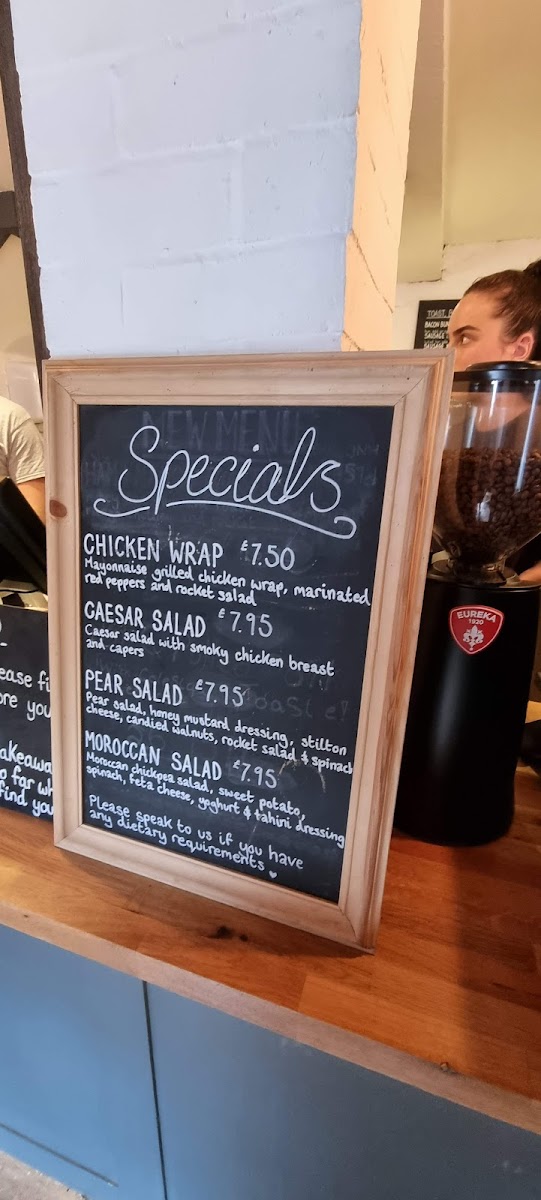 NEW MENU
Specials
CHICKEN WRAP £7.50
Mayonnaise grilled chicken wrap, marinated
red peppers and rocket salad
CAESAR SALAD £7.95
Caesar salad with smoky chicken breast
and capers
PEAR SALAD £7.95
Pear salad, honey mustard dressing, stilton
cheese, candied walnuts, rocket salad & spinach
MOROCCAN SALAD £7.95
Moroccan chickpea salad, sweet potato,
spinach, feta cheese, yoghurt & tahini dressing
Please speak to us if you have
any dietary requirements ♥
EUREKA
1920
TOAST,
BACON
ease fi
ore you
akeaway
o far wh
find you